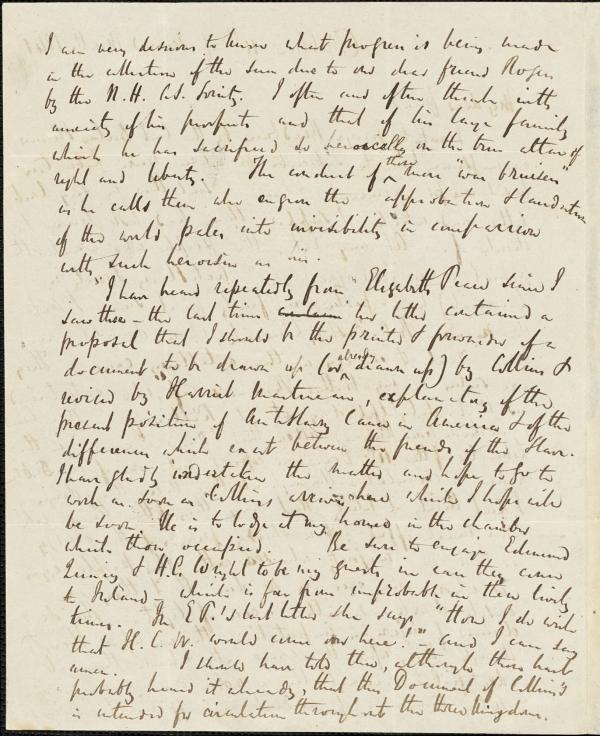 I am very desirous to know what progress is being made
in the collection of the sum due to our dear friend Rogers
by the N. H. A.S. Society. I often and often think with
anxiety of his prospects and that of his large family
which he has sacrificed so heroically on the true altar of
right and liberty. The conduct of those more "war bruisers"
as he calls them who engross the approbation & laudation
of the world pales into invisibility in comparison
with such heroism as his.
I have heard repeatedly from Elizabeth Pease since I
saw thee - the last time her letter contained a
proposal that I should be the printer & forwarder of a
document to be drawn up (or already drawn up) by Collins &
revised by Harriet Martineau, explanatory of the
present position of Anti Slavery Cause in America & of the
differences which exist between the friends of the Slave.
I have gladly undertaken the matter and hope to go to
work as soon as Collins arrives here which I hope will
be soon. He is to lodge at my house in the chamber
which thou occupied. Be sure to engage Edmund
Quincy & H.C. Wright to be my guests in case they come
to Ireland - which is far from improbable in these lively
times. In E P.'s last letter she says, "How I do wish
that H. C. W. would come over here!" - and I can say
amen. I should have told thee, although thou hast
probably heard it already, that this Document of Collins's
is intended for circulation throughout the three kingdoms.